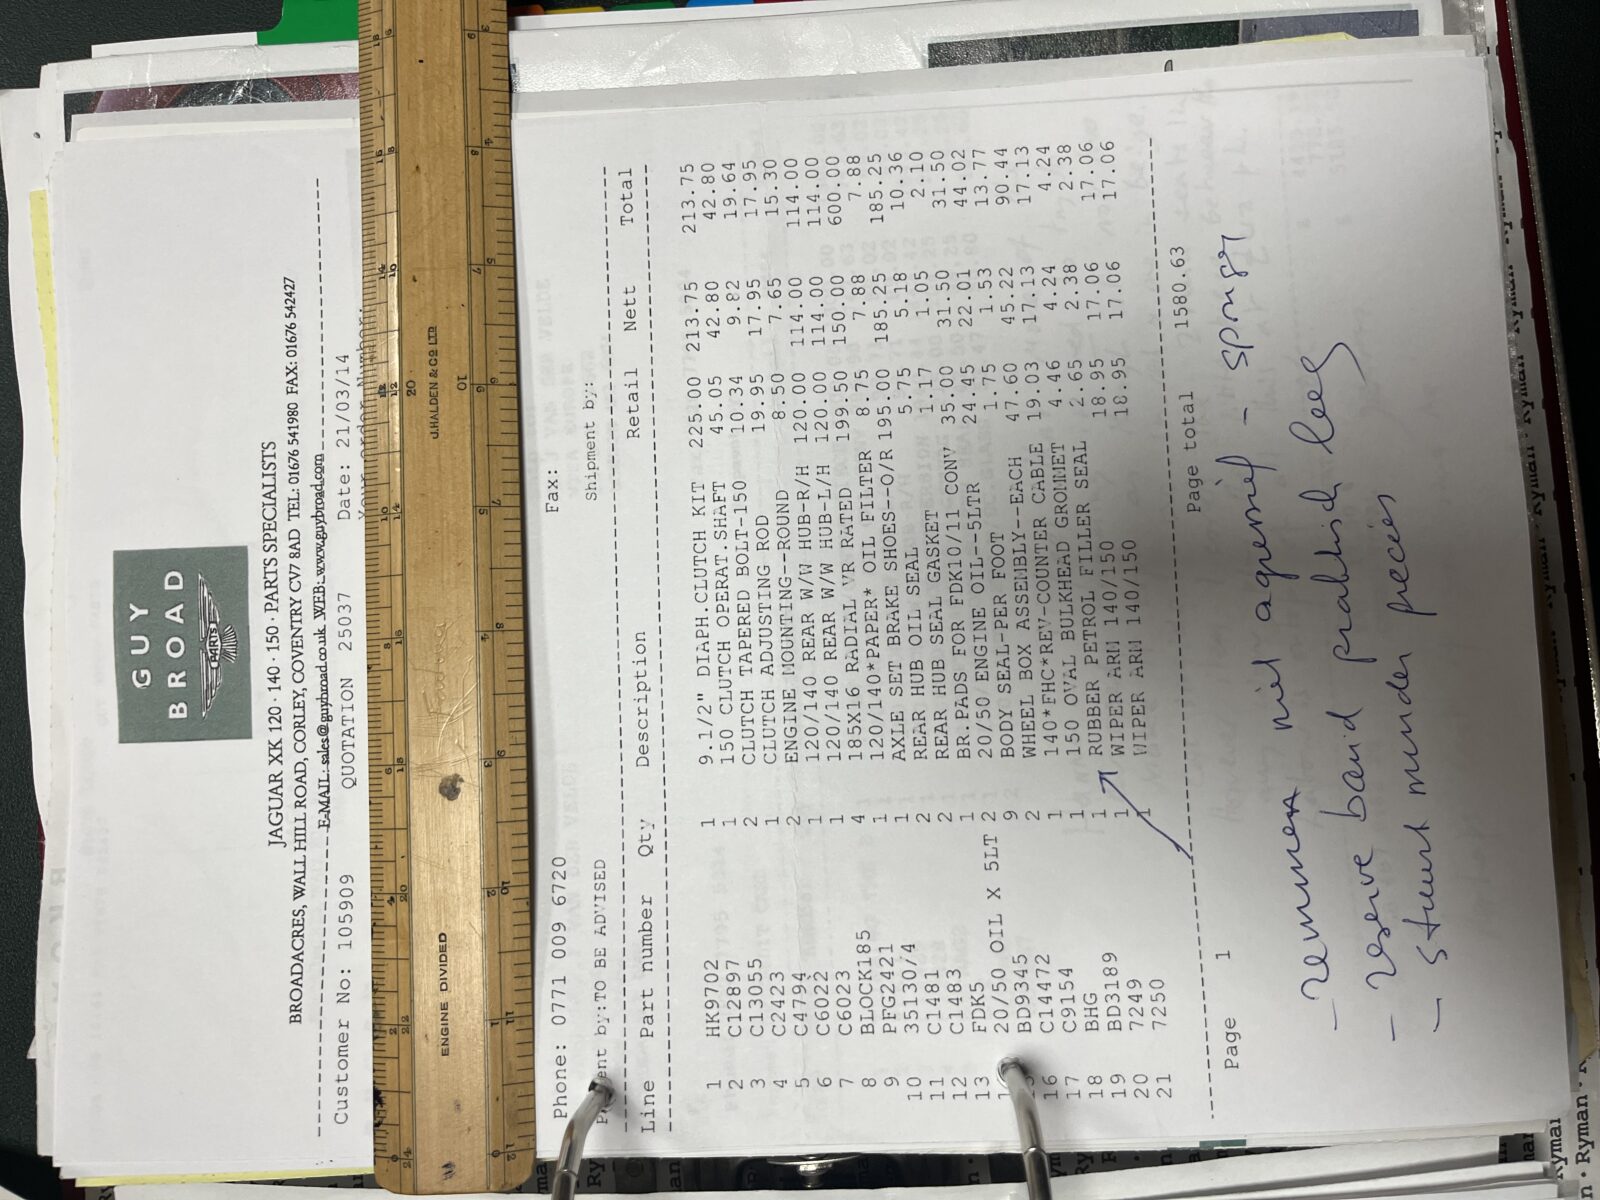 GUY
BROAD
PARTS
JAGUAR XK 120 · 140 · 150 · PARTS SPECIALISTS
BROADACRES, WALL HILL ROAD, CORLEY, COVENTRY CV7 8AD TEL: 01676 541980 FAX: 01676 542427
E-MAIL: sales@guybroad.co.uk WEB: www.guybroad.com
Customer No: 105909 QUOTATION 25037 Date: 21/03/14
Your order Number:
J.HALDEN & CO LTD
ENGINE DIVIDED
Phone: 0771 009 6720 Fax:
by:TO BE ADVISED Shipment by:
Line Part number Qty Description Retail Nett Total
1 HK9702 1 9.1/2" DIAPH.CLUTCH KIT 225.00 213.75 213.75
2 C12897 1 150 CLUTCH OPERAT.SHAFT 45.05 42.80 42.80
3 C13055 2 CLUTCH TAPERED BOLT-150 10.34 9.82 19.64
4 C2423 1 CLUTCH ADJUSTING ROD 19.95 17.95 17.95
5 C4794 2 ENGINE MOUNTING--ROUND 8.50 7.65 15.30
6 C6022 1 120/140 REAR W/W HUB-R/H 120.00 114.00 114.00
7 C6023 1 120/140 REAR W/W HUB-L/H 120.00 114.00 114.00
8 BLOCK185 4 185X16 RADIAL VR RATED 199.50 150.00 600.00
9 PFG2421 1 120/140*PAPER* OIL FILTER 8.75 7.88 7.88
10 35130/4 1 AXLE SET BRAKE SHOES--O/R 195.00 185.25 185.25
11 C1481 2 REAR HUB OIL SEAL 5.75 5.18 10.36
12 C1483 2 REAR HUB SEAL GASKET 1.17 1.05 2.10
13 FDK5 1 BR.PADS FOR FDK10/11 CONV 35.00 31.50 31.50
20/50 OIL X 5LT 2 20/50 ENGINE OIL--5LTR 24.45 22.01 44.02
BD9345 9 BODY SEAL-PER FOOT 1.75 1.53 13.77
16 C14472 2 WHEEL BOX ASSEMBLY--EACH 47.60 45.22 90.44
17 C9154 1 140*FHC*REV-COUNTER CABLE 19.03 17.13 17.13
18 BHG 1 150 OVAL BULKHEAD GROMMET 4.46 4.24 4.24
19 BD3189 1 RUBBER PETROL FILLER SEAL 2.65 2.38 2.38
20 7249 1 WIPER ARM 140/150 18.95 17.06 17.06
21 7250 1 WIPER ARM 140/150 18.95 17.06 17.06
Page 1 Page total 1580.63
- remmen niet agressief -
- reserve band
- minder